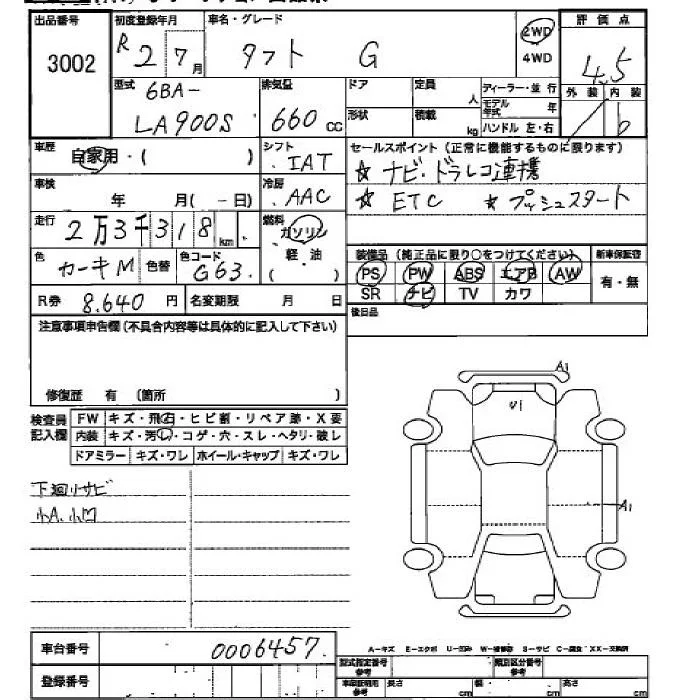 出品番号 初度登録年月 車名・グレード 評価点
3002 R 2 7月 タフト G 2WD 4WD 4.5
型式 排気量 ドア 定員 人 ディーラー・並行 外装 内装
6BA- LA900S 660cc 形状 積載 kg モデル年式 年 ハンドル 左・右 b
車歴 自家用・( ) シフト IAT セールスポイント(正常に機能するものに限ります)
☆ ナビ・ドラレコ連携
車検 年 月(-日) 冷房 AAC ☆ ETC ☆ プッシュスタート
走行 2万3千318km 燃料 ガソリン 軽油 ( )
装備品(純正品に限り○をつけてください) 新車保証書
色 カーキM 色替 色コード G63 PS PW ABS エアB AW 有・無
SR ナビ TV カワ
R券 8.640円 名変期限 月 日 後日品
注意事項申告欄(不具合内容等は具体的に記入して下さい)
修復歴 有 (箇所 )
A1
U1
A1
検査員記入欄 FW キズ・飛石・ヒビ割・リペア跡・X要
内装 キズ・汚レ・コゲ・穴・スレ・ヘタリ・破レ
ドアミラー キズ・ワレ ホイール・キャップ キズ・ワレ
下廻りサビ
小A.小凹
A-キズ E-エクボ U-凹み W-補修跡 S-サビ C-腐食 XX-交換済
車台番号 0006457
型式指定番号 参考 類別区分番号 参考
登録番号 車庫証明用 参考 長さ cm 幅 cm 高さ cm